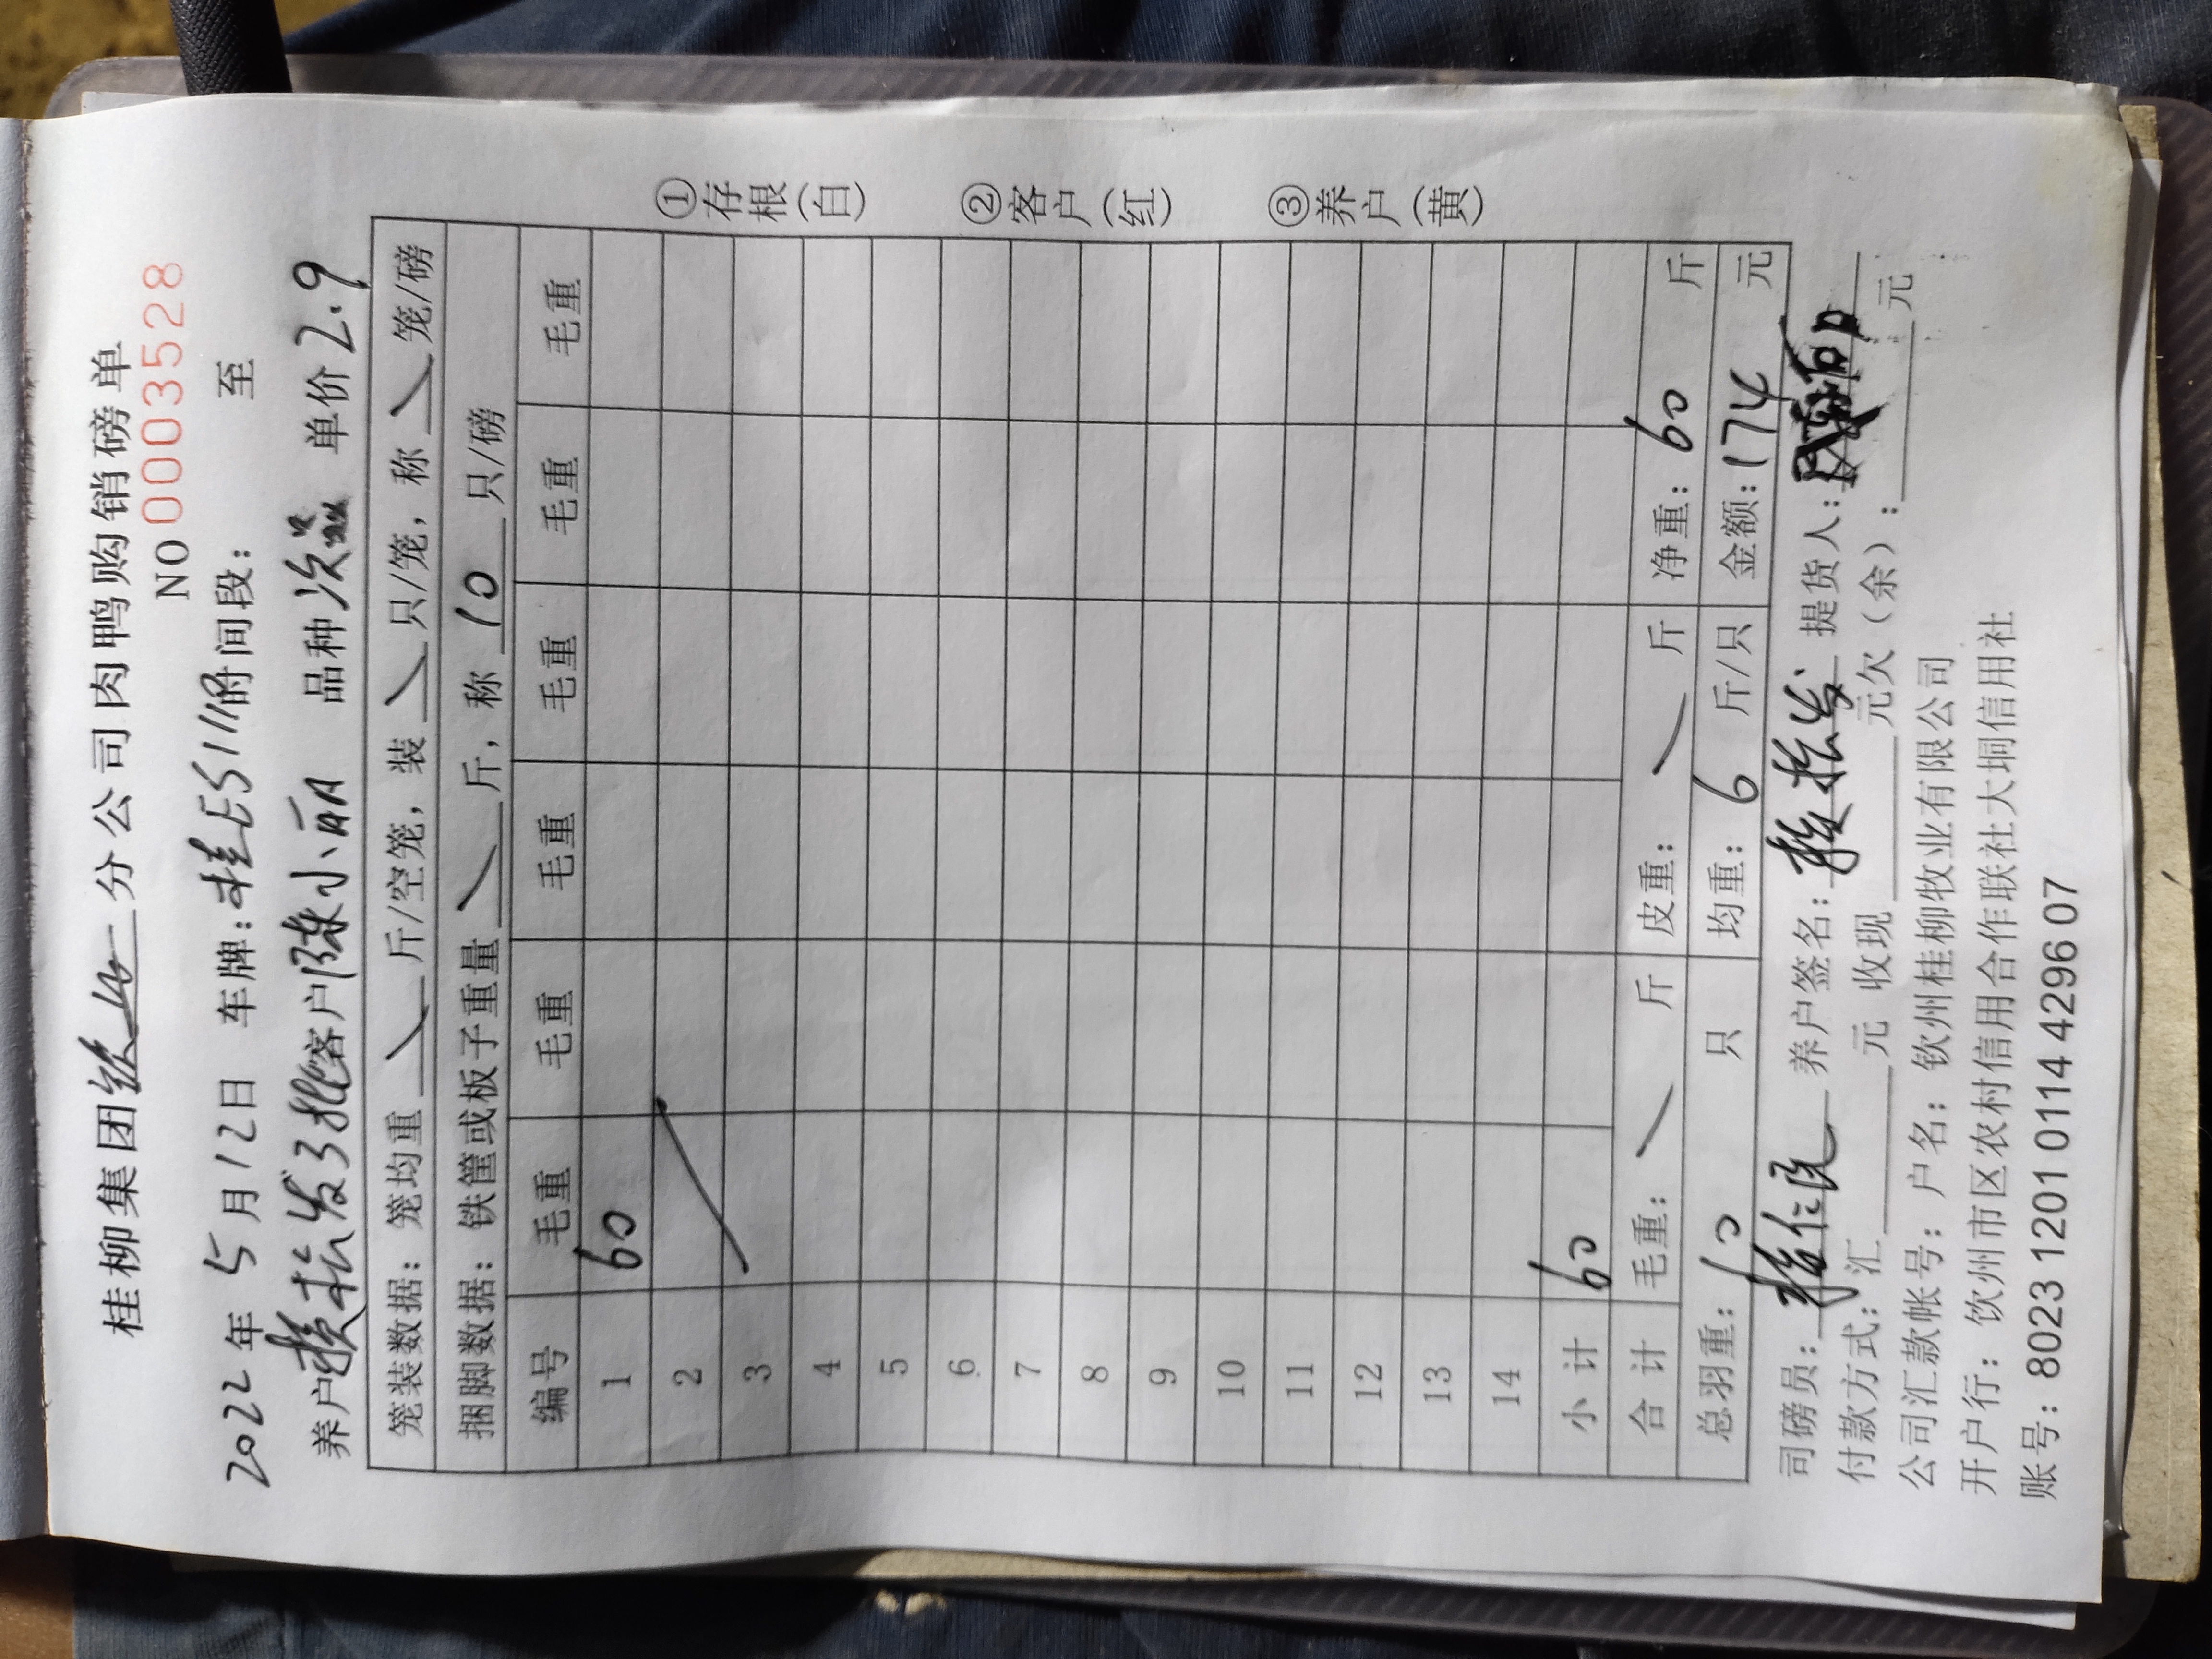 桂柳集团钦州分公司肉鸭购销磅单
NO 0003528
2022年5月12日 车牌:桂E5111时间段: 至
养户赖松发3批客户陈小丽 品种次 单价2.9
笼装数据: 笼均重 \ 斤/空笼, 装 \ 只/笼, 称 \ 笼/磅
捆脚数据: 铁筐或板子重量 \ 斤, 称 10 只/磅
编号 毛重 毛重 毛重 毛重 毛重 毛重
1 60
2
3
4
5
6
7
8
9
10
11
12
13
14
小计 60
合计 毛重: \ 斤 皮重: \ 斤 净重: 60 斤
总羽重: 10 只 均重: 6 斤/只 金额: 174 元
司磅员: 养户签名: 赖松发 提货人:
付款方式: 汇 元 收现 元欠(余): 元
公司汇款帐号: 户名: 钦州桂柳牧业有限公司
开户行: 钦州市区农村信用合作联社大垌信用社
账号: 8023 1201 0114 4296 07
①存根(白) ②客户(红) ③养户(黄)